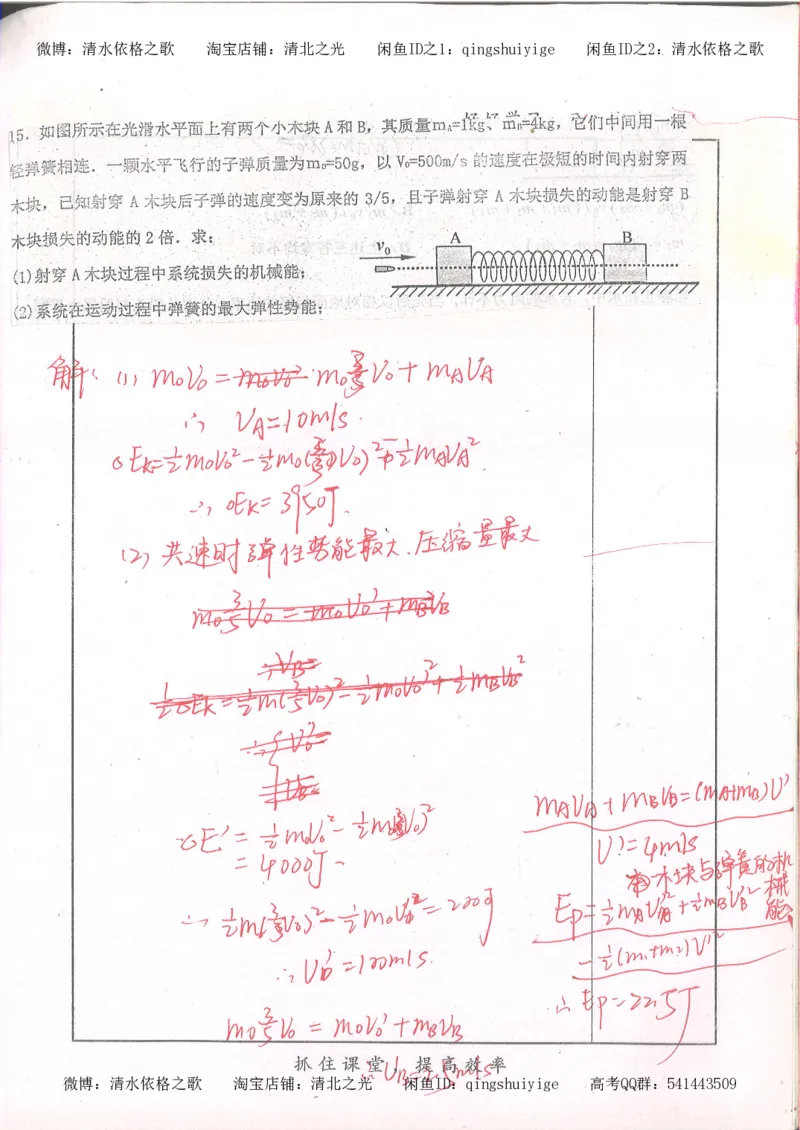 微博：清水依格之歌 淘宝店铺：清北之光 闲鱼ID之1：qingshuiyige 闲鱼ID之2：清水依格之歌
15．如图所示在光滑水平面上有两个小木块A和B，其质量mA=1kg、mB=4kg，它们中间用一根
轻弹簧相连．一颗水平飞行的子弹质量为m0=50g，以V0=500m/s的速度在极短的时间内射穿两
木块，已知射穿A木块后子弹的速度变为原来的3/5，且子弹射穿A木块损失的动能是射穿B
木块损失的动能的2倍．求：
(1)射穿A木块过程中系统损失的机械能；
(2)系统在运动过程中弹簧的最大弹性势能；
v0 A B
解：(1) m0V0 = m0 3/5 V0 + mAVA
∴ VA=10m/s.
△Ek=½m0V0²-½m0(3/5V0)²-½mAVA²
∴ △Ek=3950J.
(2) 共速时弹性势能最大. 压缩量最大
m0 3/5 V0 = m0V0' + mBVB
∴VB=
½△Ek=½m(3/5V0)²-½m0V0'²+½mBVB²
△E' = ½m0V0²-½m(3/5V0)²
= 4000J
∴ ½m(3/5V0)²-½m0V0'²=2000J
∴ V0'=100m/s.
m0 3/5 V0 = m0V0' + mBVB
∴ VB=2.5m/s
mAVA+mBVB=(mA+mB)V'
V'=4m/s
木块与弹簧的机械能
Ep=½mAVA²+½mBVB²
-½(m1+m2)V'²
∴ Ep=22.5J
抓住课堂，提高效率
微博：清水依格之歌 淘宝店铺：清北之光 闲鱼ID：qingshuiyige 高考QQ群：541443509